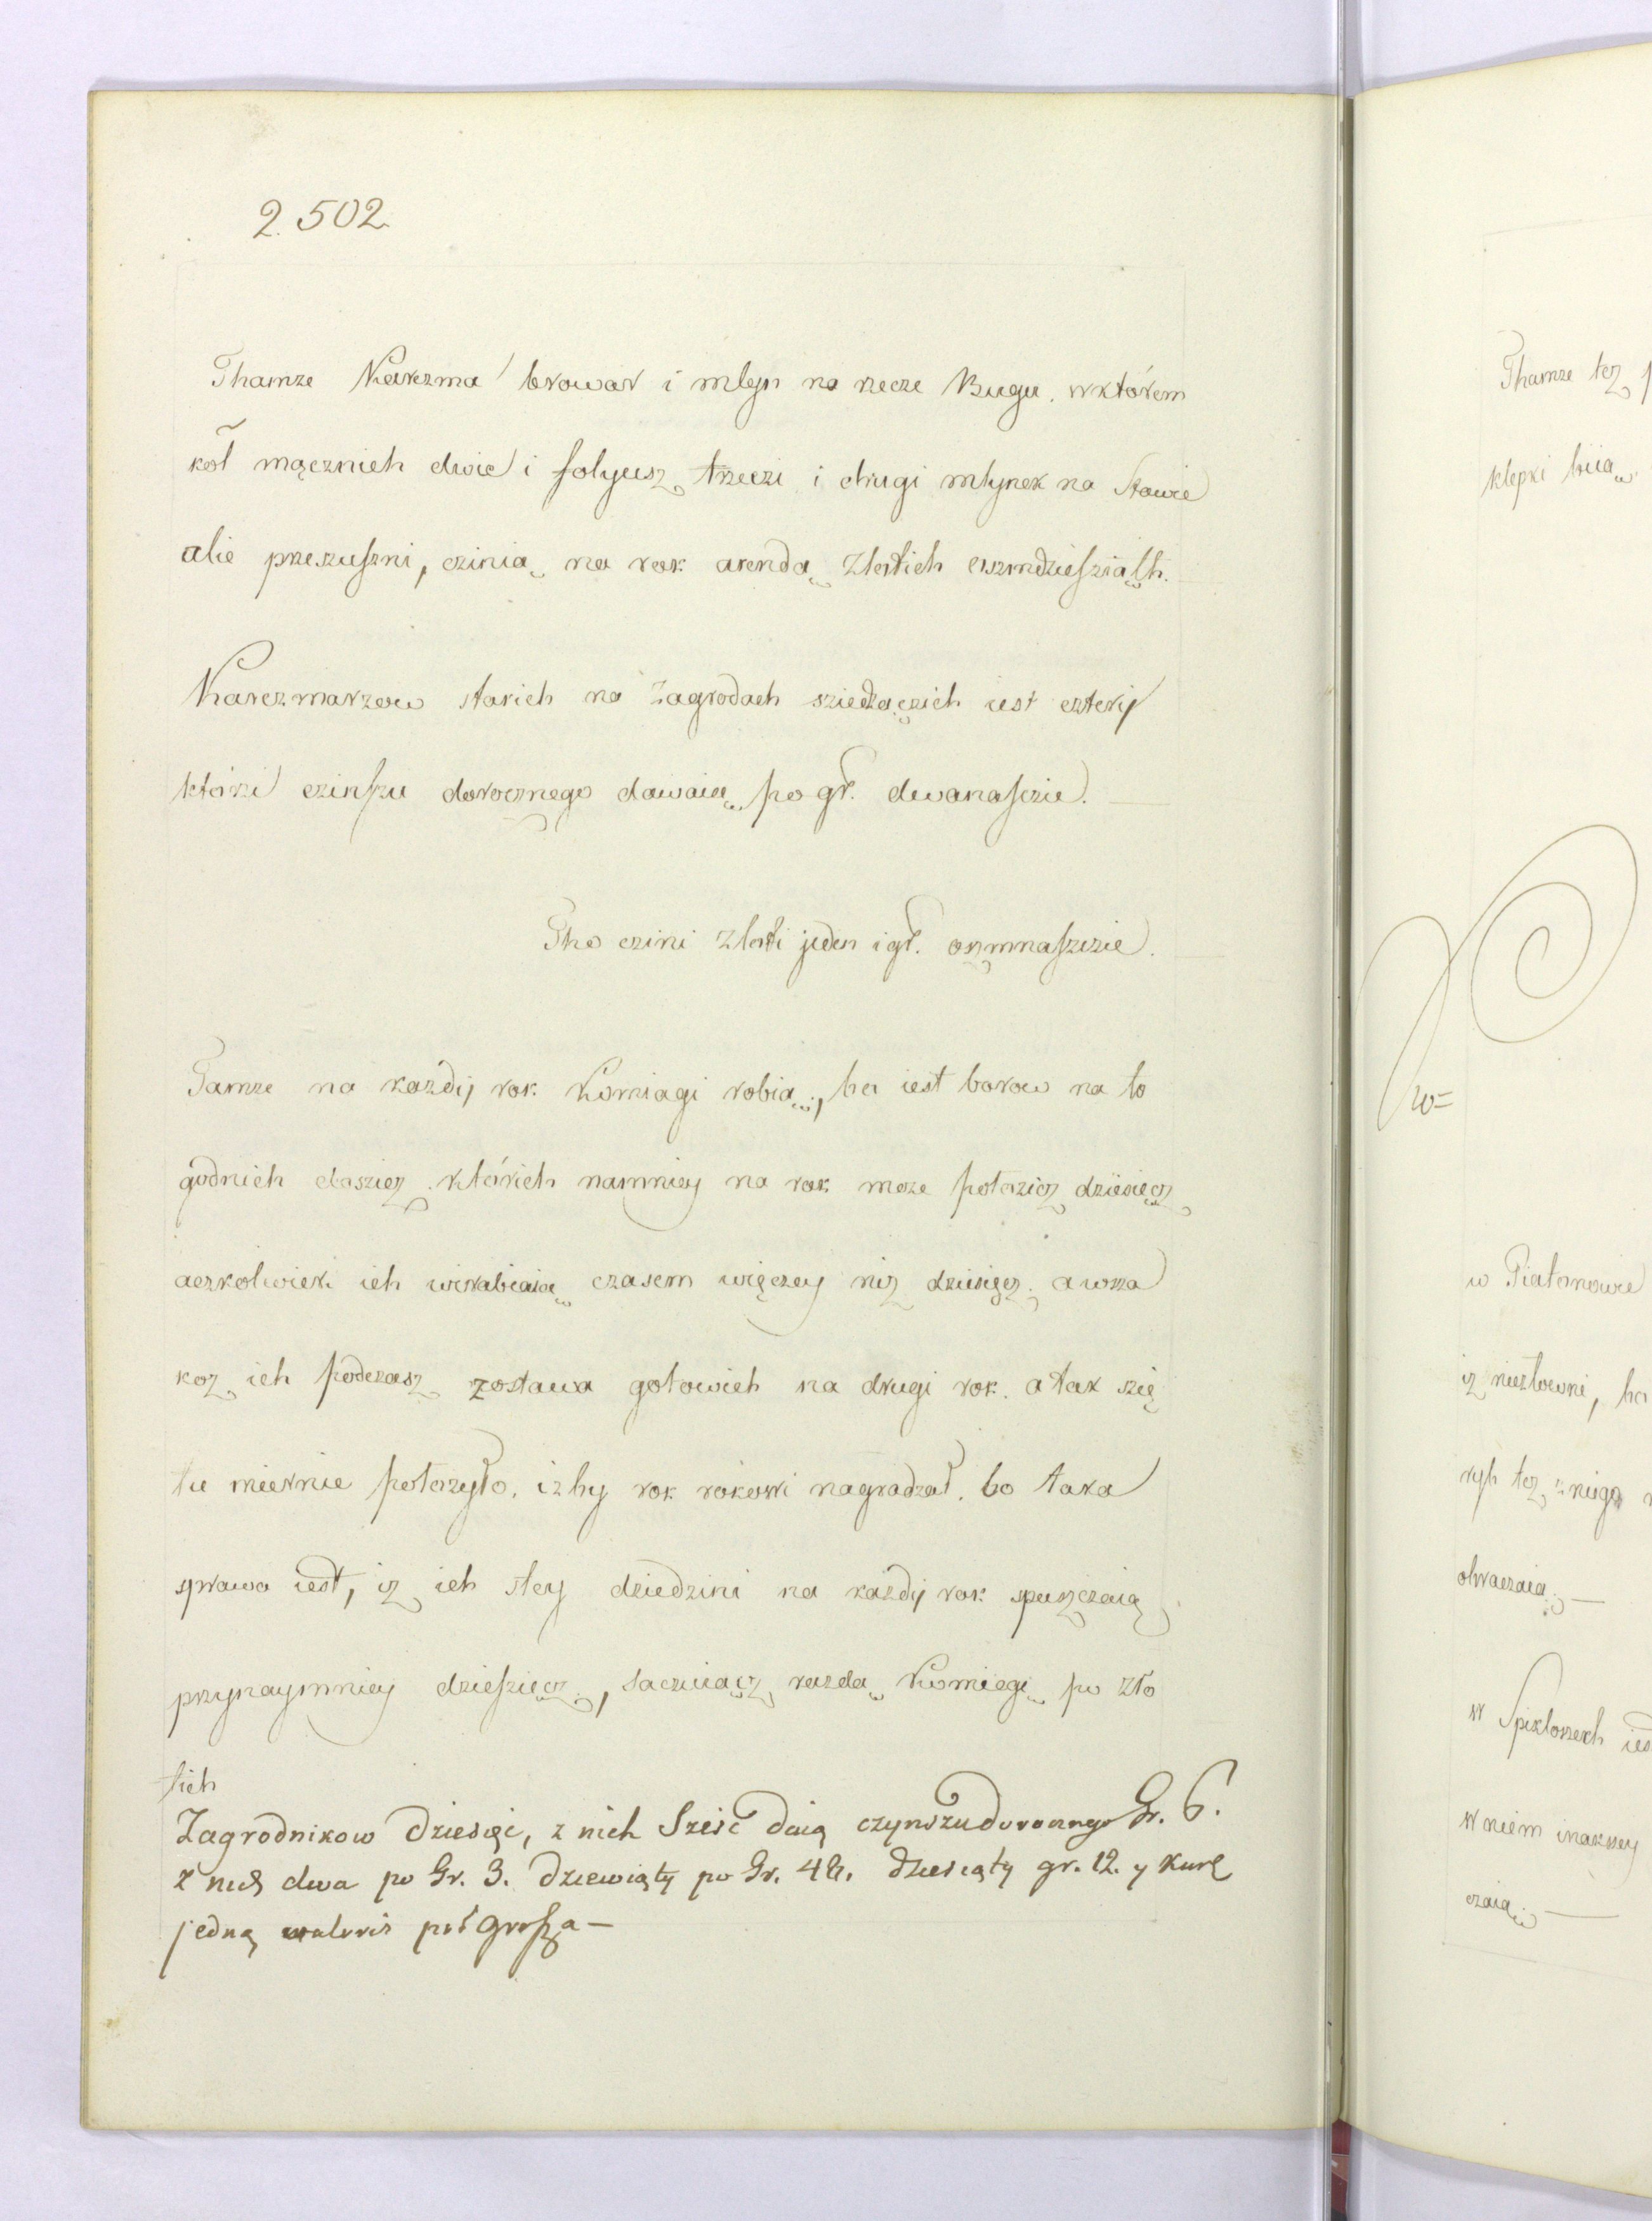 2.502
Thamze Karczma browar i mlyn na rzecze Bugu, wktórem
koł mącznich dwie i folyusz trzeczi i drugi mlynek na stawie
alie przeszuszni, czinią na rok arendą Złotich oszmdziesziąth.
Karczmarzow starich na Zagrodach sziedzączich iest czterij
którzi czinszu dorocznego dawaią po gr. dwanaszcie.
Tho czini Złoti jeden i gr. oszmnaszczie.
Tamze na kazdij rok Komiagi robią, bo iest borow na to
godnich dosziez których namniey na rok moze położicz dziesięcz
aczkolwiek ich wirabiaią czasem więczey niz dziesięcz. awsza
koz ich podczasz zostawa gotowich na drugi rok. a tak szię
tu miernie położyło, izby rok rokowi nagradzał, bo taka
sprawa iest, iz ich stey dziedzini na każdij rok spuszczaią
przynaymniey dziesziącz, saczuiącz kazdą Komiegę po zło
tich
Zagrodnikow Dziesięć, z nich Sześć daią czynszu dorocznego Gr. 6.
z nich dwa po Gr. 3. Dziewiąty po Gr. 48. Dziesiąty gr. 12. y Kurę
jedną waloris puł Grosza —
Thamze tez
klepki biią
w=
w Piatonowie
iz niezłowni, bo
rych tez z niego
obraczaią —
w Spikloszech
w niem inakszey
czaią. —